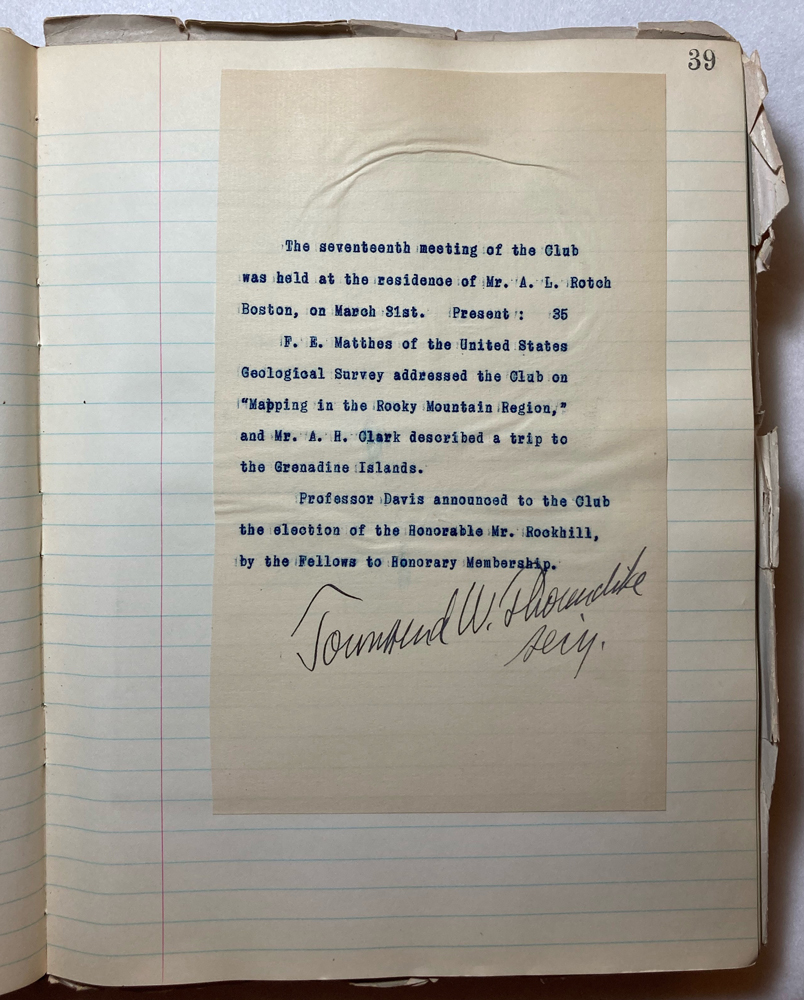 39
The seventeenth meeting of the Club
was held at the residence of Mr. A. L. Rotch
Boston, on March 31st. Present: 35
F. E. Matthes of the United States
Geological Survey addressed the Club on
"Mapping in the Rocky Mountain Region,"
and Mr. A. H. Clark described a trip to
the Grenadine Islands.
Professor Davis announced to the Club
the election of the Honorable Mr. Rockhill,
by the Fellows to Honorary Membership.
Townsend W. Thorndike
secy.